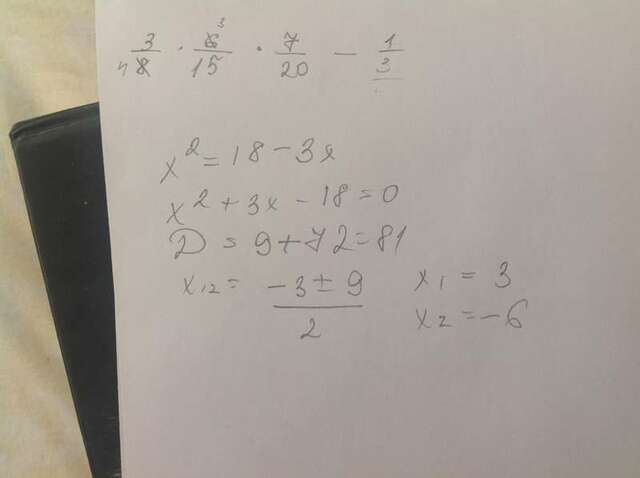 3/8 4 · 6/15 3 · 7/20 − 1/3
x² = 18 − 3x
x² + 3x − 18 = 0
D = 9 + 72 = 81
x₁₂ = (−3 ± 9)/2
x₁ = 3
x₂ = −6